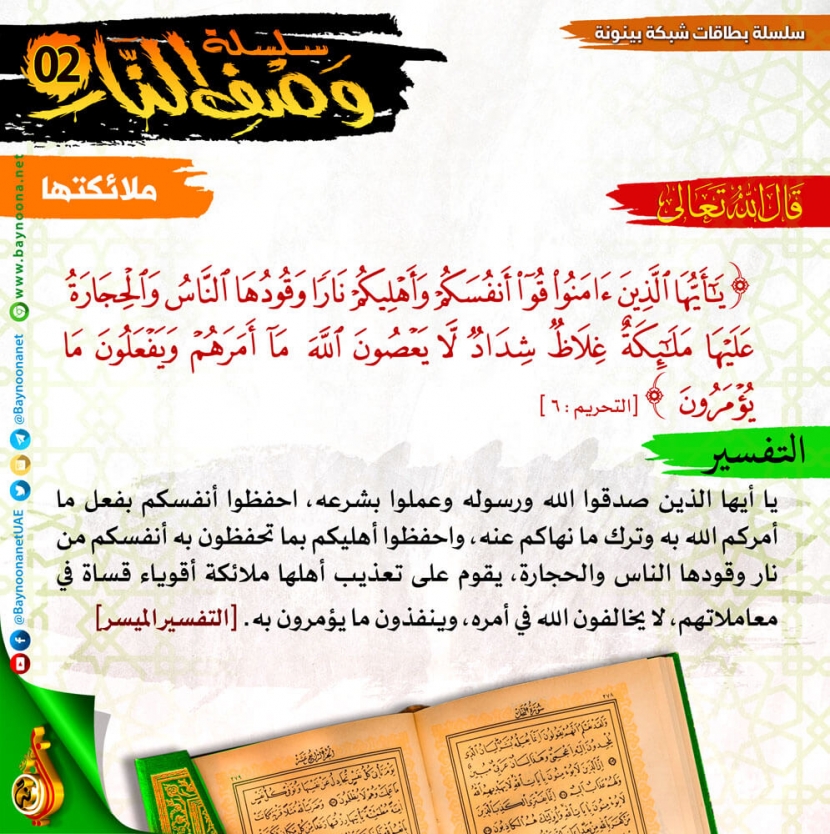 سلسلة بطاقات شبكة بينونة
سلسلة
وَصْفِ النَّارِ
02
ملائكتها
قَالَ اللهُ تَعَالَى
﴿ يَٰٓأَيُّهَا ٱلَّذِينَ ءَامَنُواْ قُوٓاْ أَنفُسَكُمۡ وَأَهۡلِيكُمۡ نَارٗا وَقُودُهَا ٱلنَّاسُ وَٱلۡحِجَارَةُ
عَلَيۡهَا مَلَٰٓئِكَةٌ غِلَاظٞ شِدَادٞ لَّا يَعۡصُونَ ٱللَّهَ مَآ أَمَرَهُمۡ وَيَفۡعَلُونَ مَا
يُؤۡمَرُونَ ﴾ [التحريم : ٦]
التفسير
يا أيها الذين صدقوا الله ورسوله وعملوا بشرعه، احفظوا أنفسكم بفعل ما
أمركم الله به وترك ما نهاكم عنه، واحفظوا أهليكم بما تحفظون به أنفسكم من
نار وقودها الناس والحجارة، يقوم على تعذيب أهلها ملائكة أقوياء قساة في
معاملاتهم، لا يخالفون الله في أمره، وينفذون ما يؤمرون به. [التفسير الميسر]
www.baynoona.net
@Baynoonanet
@BaynoonanetUAE